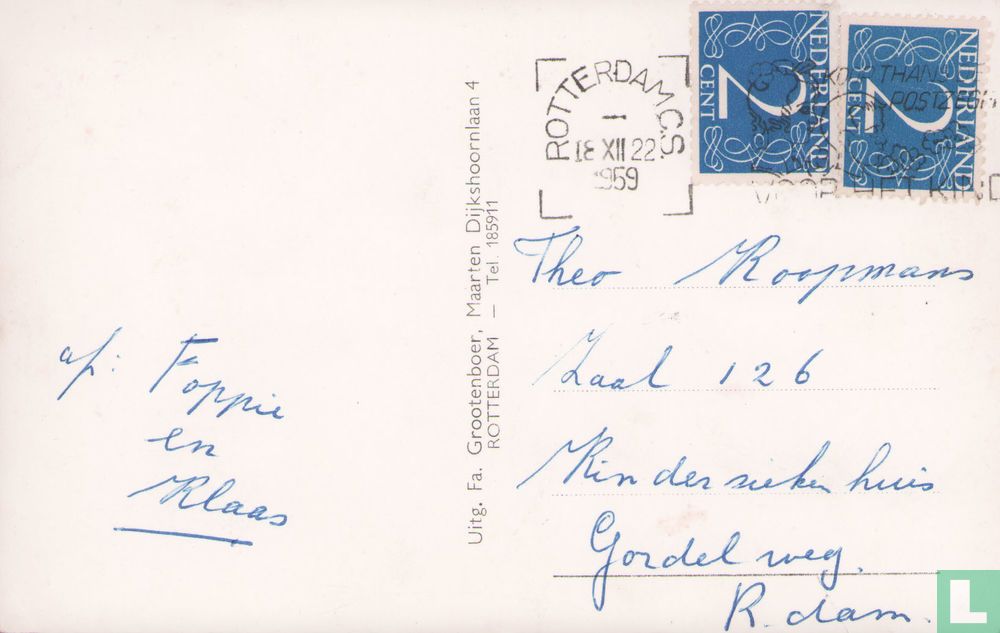 NEDERLAND
2
CENT
NEDERLAND
2
CENT
ROTTERDAM C.S.
18 XII 22
1959
POSTZEG
VOOR HET KIND
Uitg. Fa. Grootenboer, Maarten Dijkshoornlaan 4
ROTTERDAM — Tel. 185911
Theo Koopmans
Zaal 126
Kinderziekenhuis
Gordelweg.
R.dam.
af: Foppie
en
Klaas
L